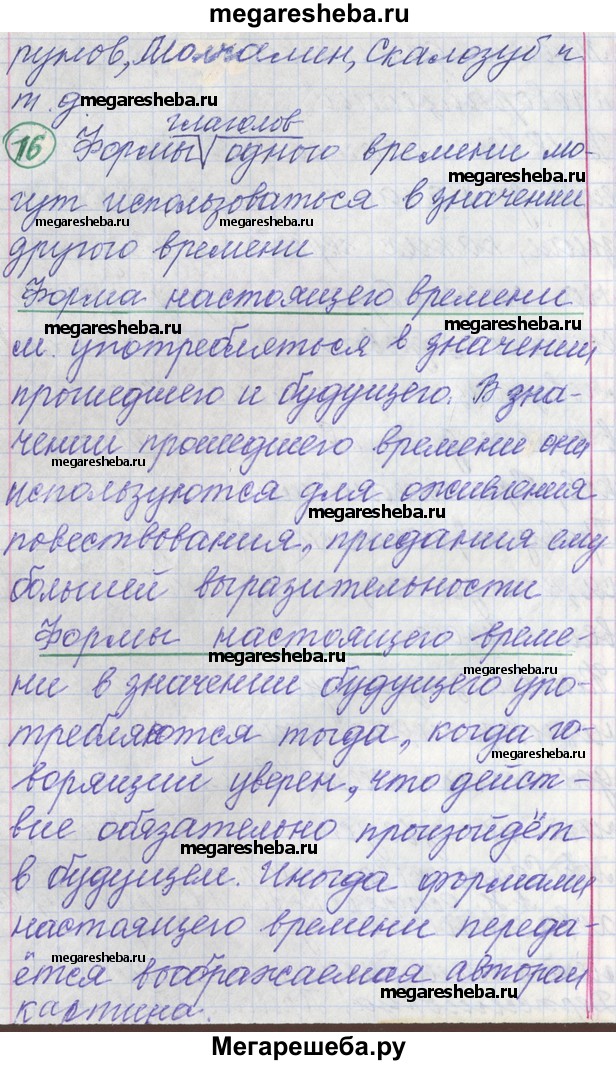 megaresheba.ru
румов, Молчалин, Скалозуб и
т. д.
megaresheba.ru
16 Формы глаголов одного времени мо-
гут использоваться в значении
megaresheba.ru megaresheba.ru
другого времени
Форма настоящего времени
megaresheba.ru megaresheba.ru
м. употребляться в значении
прошедшего и будущего. В зна-
чении прошедшего времени они
megaresheba.ru
используются для оживления
megaresheba.ru
повествования, придания ему
большей выразительности
Формы настоящего време-
megaresheba.ru megaresheba.ru
ни в значении будущего упо-
требляются тогда, когда го-
megaresheba.ru
ворящий уверен, что дейст-
вие обязательно произойдёт
megaresheba.ru
в будущем. Иногда формами
настоящего времени переда-
ётся воображаемая автором
megaresheba.ru
картина.
Мегарешеба.ру